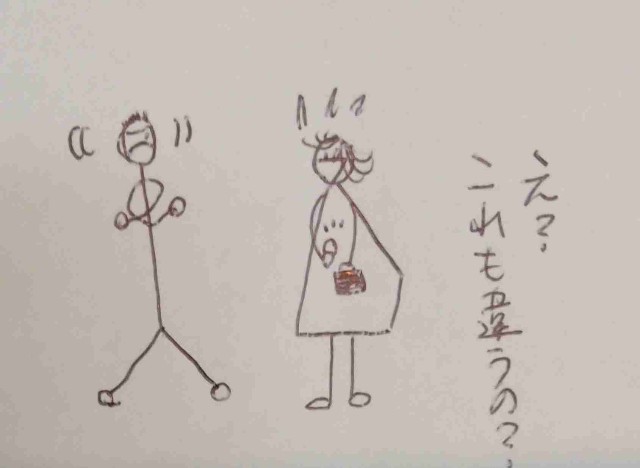 え？
これも違うの？